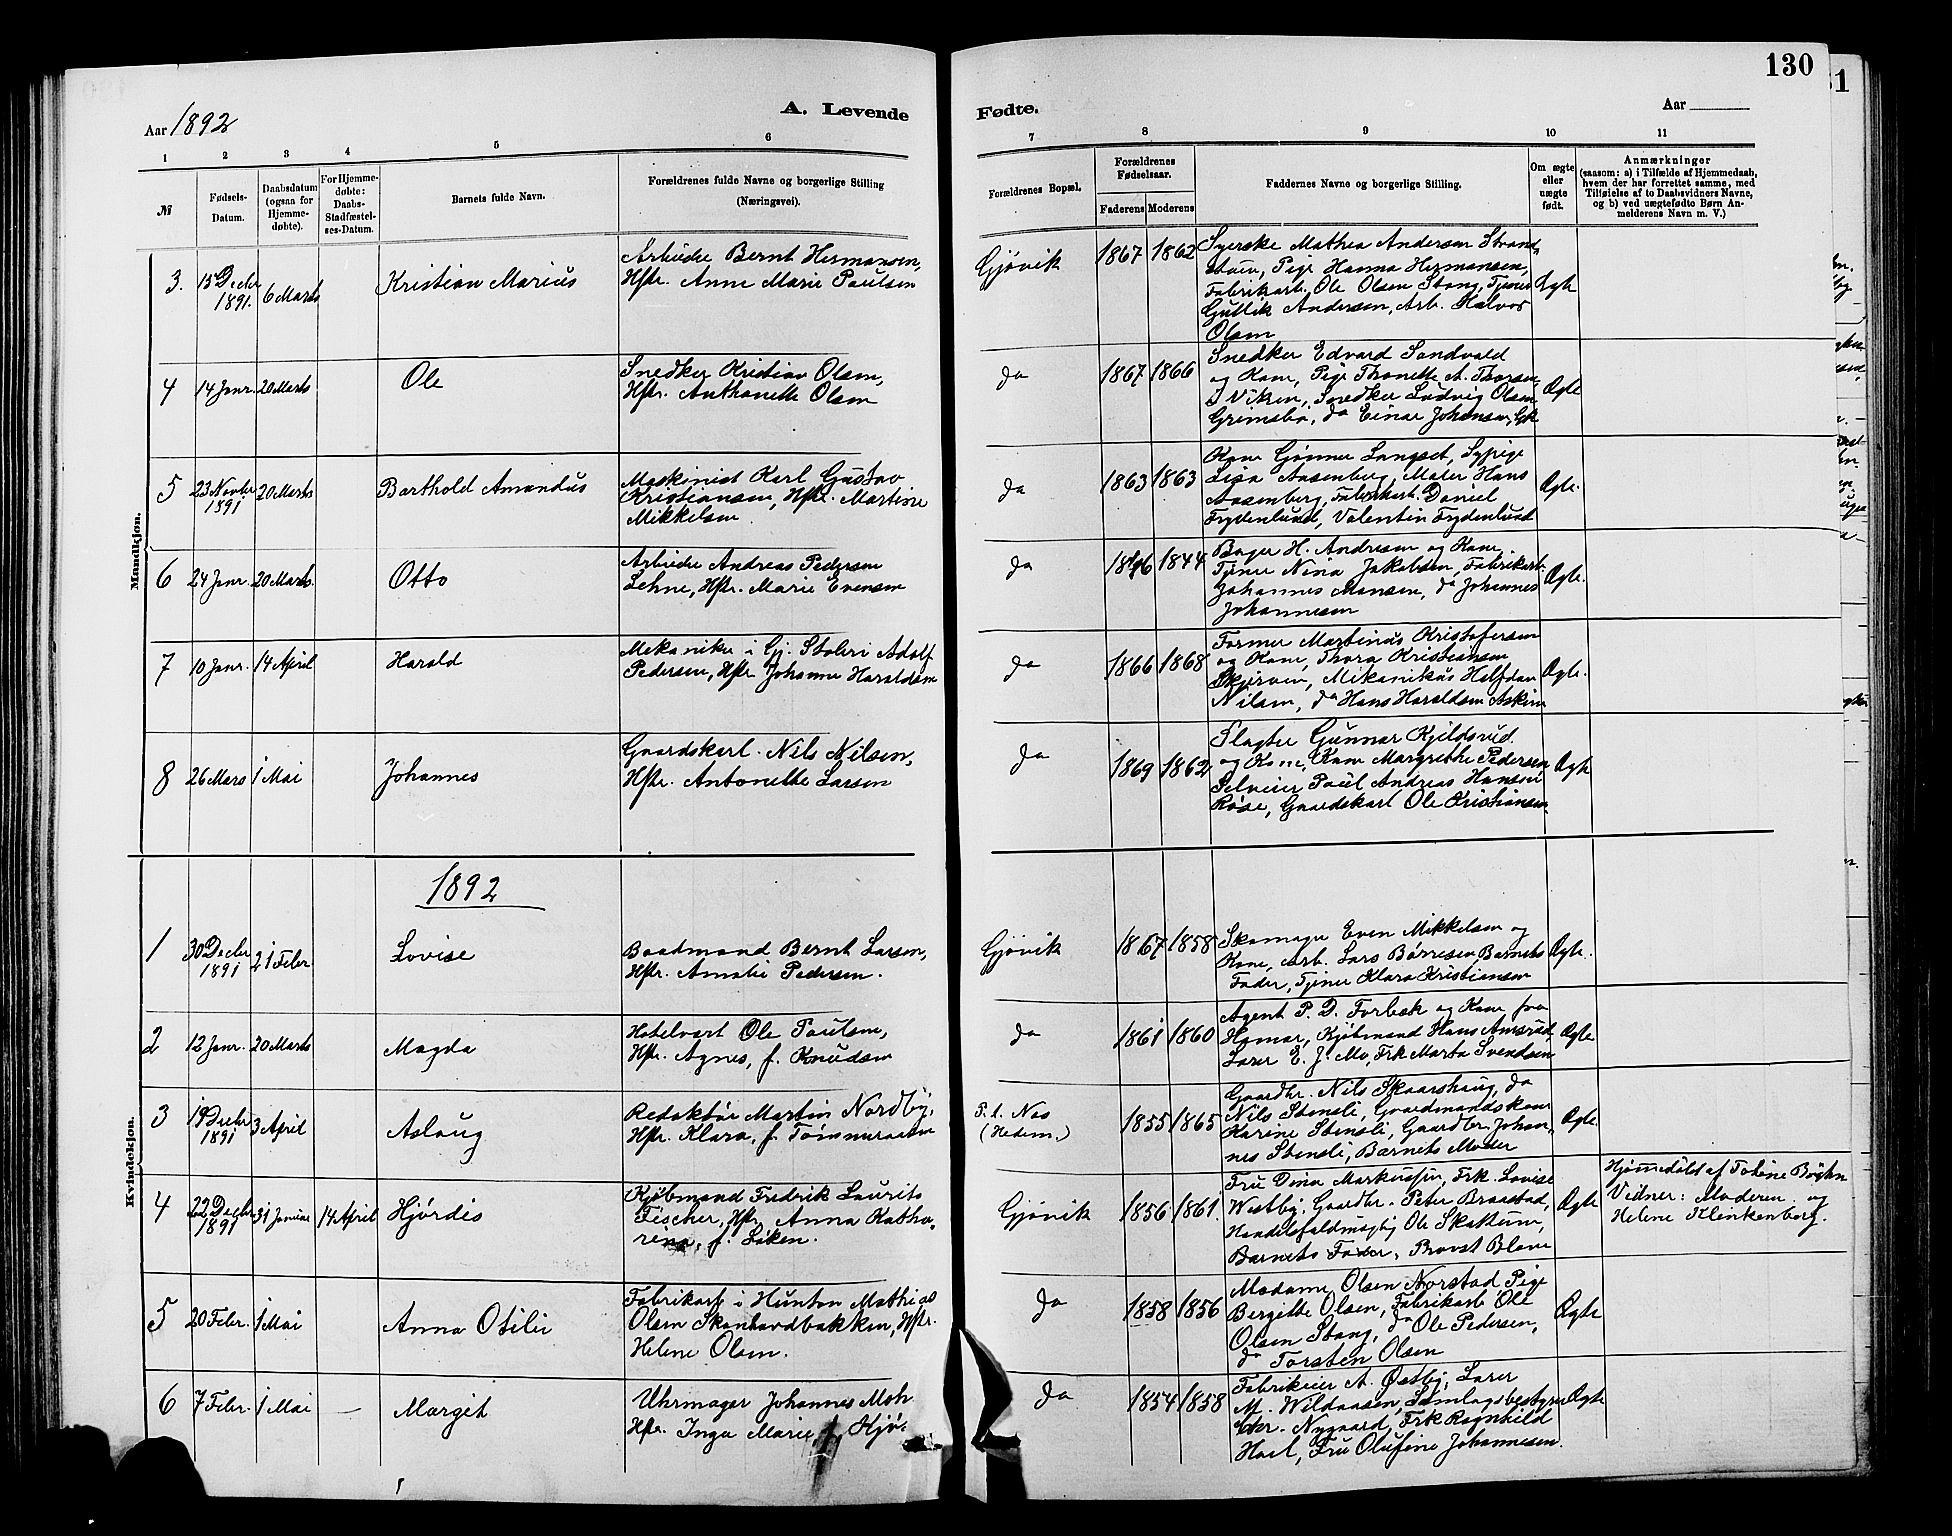 130
Aar 1892
A. Levende
Fødte.
Aar
1
2
3
4
5
6
7
8
9
10
11
№
Fødsels-
Datum.
Daabsdatum
(ogsaa for
Hjemme-
døbte).
For Hjemme-
døbte:
Daabs-
Stadfæstel-
ses-Datum.
Barnets fulde Navn.
Forældrenes fulde Navne og borgerlige Stilling
(Næringsvei).
Forældrenes Bopæl.
Forældrenes
Fødselsaar.
Faderens
Moderens
Faddernes Navne og borgerlige Stilling.
Om ægte
eller
uægte
født.
Anmærkninger
(saasom: a) i Tilfælde af Hjemmedaab,
hvem der har forrettet samme, med
Tilføielse af to Daabsvidners Navne,
og b) ved uægtefødte Børn An-
melderens Navn m. V.)
Mandkjøn.
3. 15 Decbr 1891. 6 Marts
Kristian Marius
Arbeider Bernt Hermansen,
Hstr. Anne Marie Paulsen
Gjøvik
1867 1862
Syerske Mathea Andersen Strand-
stuen, Pige Hanna Hermansen,
Fabrikarb. Ole Olsen Stang, Tjener
Gullik Andersen, Arb. Halvor
Olsen
Ægte
4 14 Janr. 20 Marts
Ole
Snedker Kristian Olsen,
Hstr. Anthonette Olsen
da
1867 1866
Snedker Edvard Sandvold
og Kone, Pige Thonette A. Thorsen,
J. Viken, Snedker Ludvig Olsen
Grimsbø, da Einar Johansen,
Ægte
5 23 Novbr 1891 20 Marts
Barthold Amandus
Maskinist Karl Gustav
Kristiansen, Hstr. Martine
Mikkelsen
da
1863 1863
Kone Gunner Langset, Sypige
Lisa Aasenberg, Maler Hans
Aasenberg, Fabrikarb. Daniel
Frydenlund, Valentin Frydenlund
Ægte.
6 24 Janr. 20 Marts.
Otto
Arbeider Andreas Pedersen
Lehne, Hstr. Marie Evensen
da
1846 1844
Bager H. Andresen og Kone,
Tjener Nina Jakobsen, Fabrikarb.
Johannes Monsen, da Johannes
Johannesen
Ægte.
7 10 Janr. 14 April
Harald
Mekaniker i Gj. Støberi Adolf
Pedersen, Hstr. Johanne Haraldsen
da
1866 1868
Former Martinus Kristofersen
og Kone, Thora Kristiansen
Skjerven, Mikanikus Halfdan
Nilsen, da Hans Haraldsen Askim
Ægte.
8 26 Mars 1 Mai
Johannes
Gaardskarl Nils Nilsen,
Hstr. Antonette Larsen
da
1869 1862
Slagter Gunnar Kjildsvid
og Kone, Kone Margrethe Pedersen
Paul Andreas Hansen
Røse, Gaardskarl Ole Kristiansen
Ægte
Kvindekjøn.
1892
1 30 Decbr 1891 21 Febr
Lovise
Baadmand Bernt Larsen,
Hstr. Amalie Pedersen.
Gjøvik
1867 1858
Skomager Even Mikkelsen og
Kone, Arb. Lars Børresen, Barnets
Fader, Tjener Klara Kristiansen
Ægte.
2 12 Janr. 20 Marts
Magda
Hotelvert Ole Paulsen,
Hstr. Agnes, f. Knudsen
da
1861 1860
Agent P. D. Forbek og Kone fra
Hamar, Kjøbmand Hans Amsrud,
Lærer E. J. Mo, Frk Marta Svendsen
Ægte.
3 19 Decbr 1891 3 April
Aslaug
Redaktør Martin Nordby,
Hstr. Klara, f. Tømmeraasen
P.t. Nes
(Hedem.)
1855 1865
Gaardbr. Nils Skaarshaug, da
Nils Stensli, Gaardmandskone
Karine Stensli, Gaardbr. Johan-
nes Stensli, Barnets Moder
Ægte.
4 22 Decbr 1891 31 Januar 14 April
Hjørdis
Kjøbmand Fredrik Laurits
Fischer, Hstr. Anna Katha-
rena, f. Løken.
Gjøvik
1856 1861.
Fru Dina Markussen, Frk. Lovise
Westby, Gaardbr. Peter Braastad,
Handelsfuldmægtig Ole Skattum,
Barnets Fader, Provst Blom
Ægte
Hjemmedøbt af Tohine Bøhn
Vidner: Moderen og
Helene Klinkenborg.
5 20 Febr. 1 Mai
Anna Otilie
Fabrikarb. i Hunton Mathias
Olsen Skonhovdbakken, Hstr.
Helene Olsen.
da
1858 1856
Madame Olsen Norstad Pige
Bergitte Olsen, Fabrikarb Ole
Olsen Stang, da Ole Pedersen,
da Torsten Olsen
Ægte
6 7 Febr. 1 Mai —
Margit
Uhrmager Johannes Moh
Hstr. Inga Marie, f. Kjøs
da
1854 1858
Fabrikeier A. Østby, Lærer
M. Wildaasen, Samlagsbestyrer
Chr. Nygaard, Frk Ragnhild
Hoel, Fru Olufine Johannesen.
Ægte